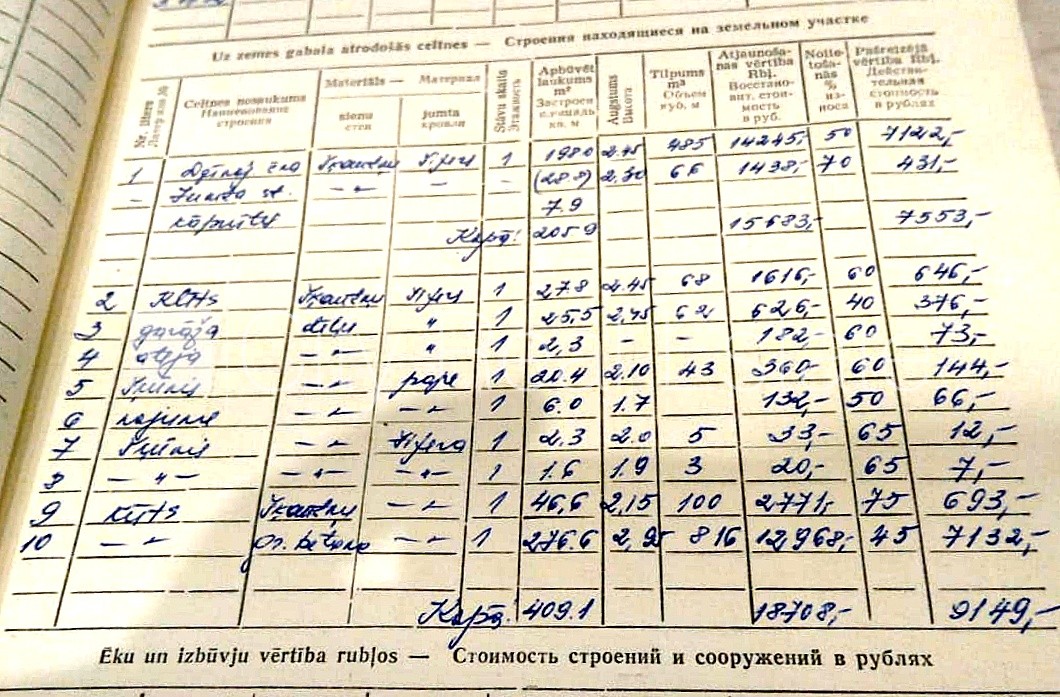 Uz zemes gabala atrodošās celtnes — Строения находящиеся на земельном участке
Nr. litera Celtnes nosaukums Materiāls — Материал Stāvu skaits Apbūvēt. laukums m² Augstums Tilpums m³ Atjaunošanas vērtība Rbļ. Nolietošanās % Pašreizējā vērtība Rbļ.
Наименование строения sienu стен jumta кровли Этажность Застроен. площадь кв. м Высота Объем куб. м Восстановит. стоимость в руб. % износа Действительная стоимость в рублях
1 Dzīvoj. ēka Ķieģeļu Šīfera 1 198.0 2.45 485 14245,- 50 7122,-
- Jumta st. -"- - - (28.8) 2.30 66 1438,- 70 431,-
7.9
Kopā: 205.9 15683,- 7553,-
2 Kūts šīfera 1 27.8 2.45 68 1616,- 60 646,-
3 garāža dēļu " 1 25,5 2,45 62 626,- 40 376,-
4 ateja -"- " 1 2,3 - - 182,- 60 73,-
5 Šķūnis -"- pape 1 20.4 2.10 43 360,- 60 144,-
6 nojume -"- -"- 1 6.0 1.7 132,- 50 66,-
7 Šķūnis -"- šīfera 1 2.3 2.0 5 33,- 65 12,-
8 -"- -"- -"- 1 1.6 1.9 3 20,- 65 7,-
9 Kūts -"- 1 46,6 2,15 100 2771,- 75 693,-
10 -"- betona -"- 1 276.6 2,95 816 12968,- 45 7132,-
Kopā: 409.1 18708,- 9149,-
Ēku un izbūvju vērtība rubļos — Стоимость строений и сооружений в рублях